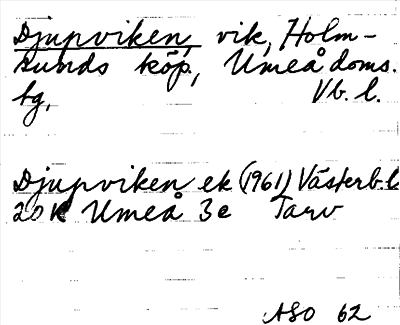 Djupviken, vik, Holm-
sunds köp., Umeå doms.
tg, Vb. l.
Djupviken ek (1961) Västerb. l
20K Umeå 3e Tarv
ASO 62